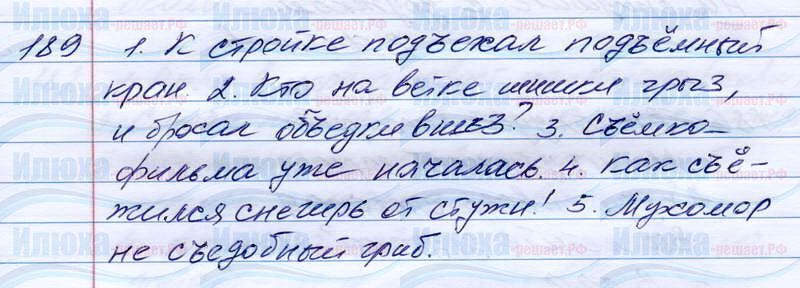 189 1. К стройке подъехал подъёмный
кран. 2. Кто на ветке шишки грыз,
и бросал объедки вниз? 3. Съёмка
фильма уже началась. 4. Как съё-
жился снегирь от стужи! 5. Мухомор
не съедобный гриб.